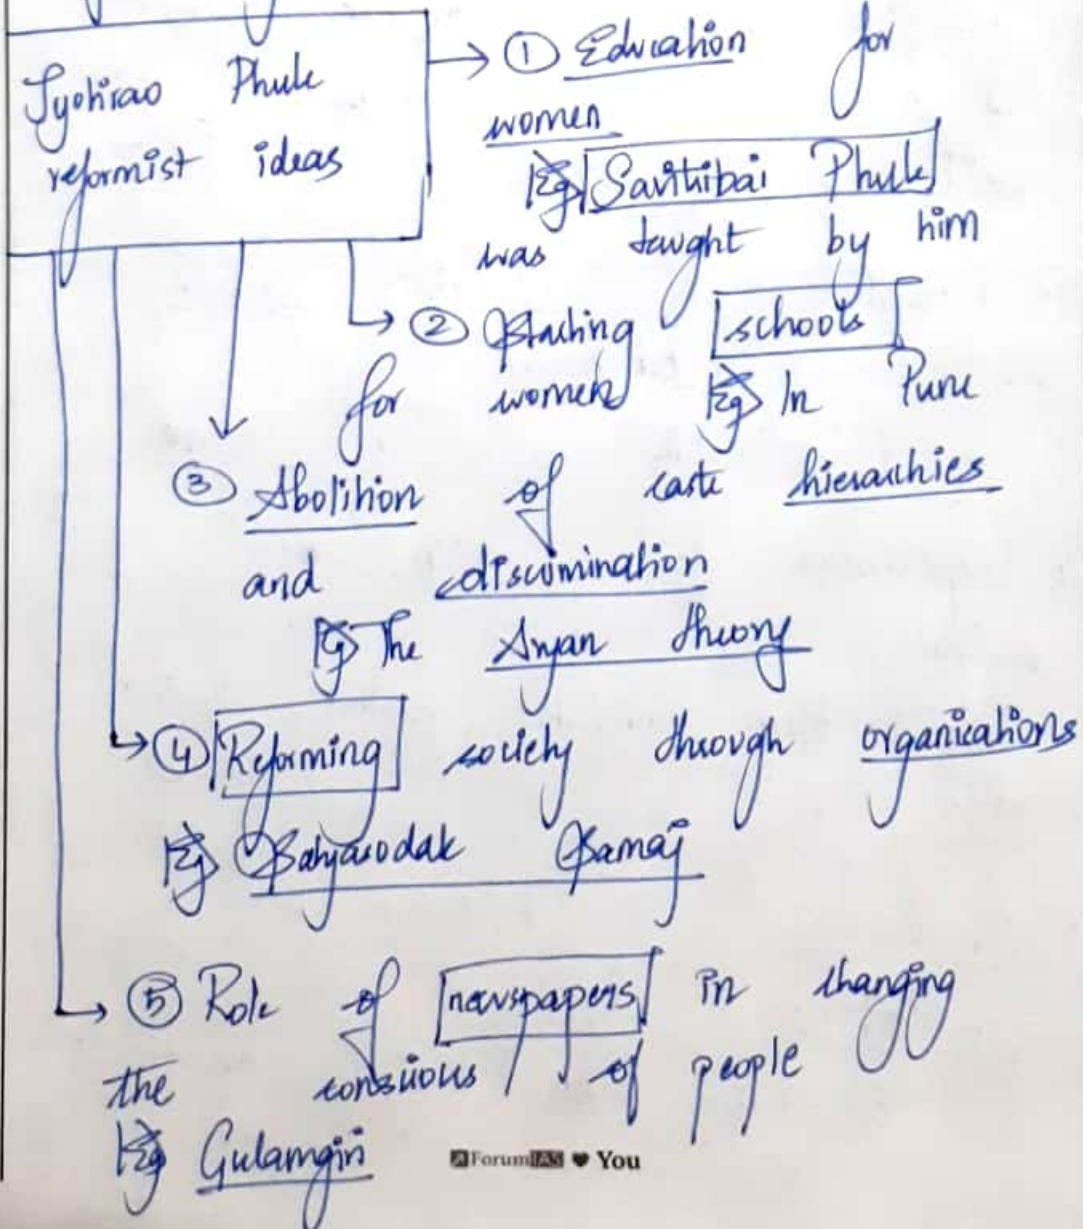 Jyotirao Phule
reformist ideas
→ ① Education for
women
Eg Savitribai Phule
was taught by him
② Starting schools
for women Eg In Pune
③ Abolition of caste hierarchies
and discrimination
Eg The Aryan theory
④ Reforming society through organizations
Eg Satyasodak Samaj
⑤ Role of newspapers in changing
the conscious of people
Eg Gulamgiri
ForumIAS ♥ You